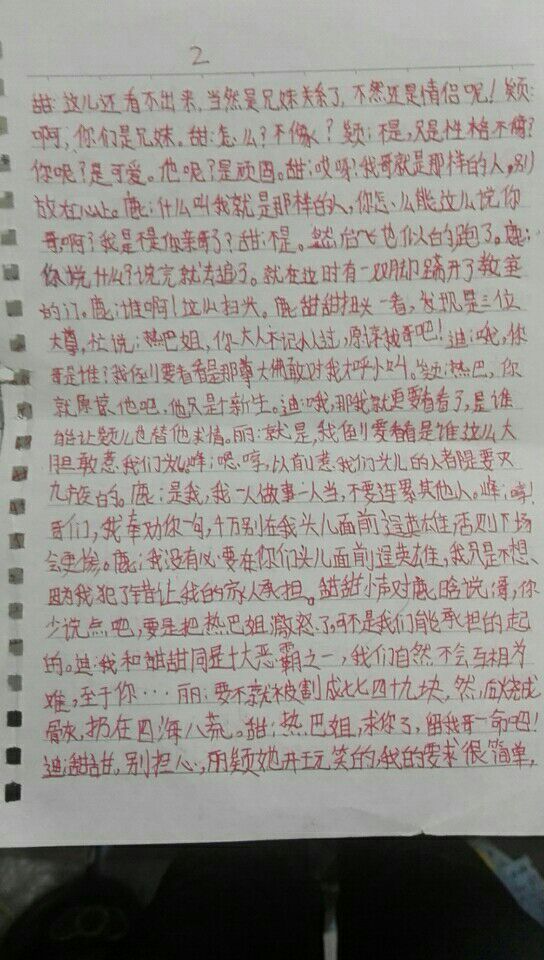 2
甜:这儿还看不出来,当然是兄妹关系了,不然还是情侣呢!颖:
啊,你们是兄妹。甜:怎么?不像?颖:不是,只是性格不像?
你呢?是可爱。他呢?是顽固。甜:哎呀!我哥就是那样的人,别
放在心上。鹿:什么叫我就是那样的人,你怎么能这么说你
哥啊?我是不是你亲哥了?甜:不是。然后飞也似的跑了。鹿:
你说什么?说完就去追了。就在这时有一双脚踢开了教室
的门。鹿:谁啊!这么扫兴。鹿甜甜扭头一看,发现是三位
大尊,忙说:热巴姐,你大人不记小人过,原谅我哥吧!迪:哦,你
哥是谁?我倒要看看是那尊大佛敢对我大呼小叫。颖:热巴,你
就原谅他吧,他只是个新生。迪:哦,那我就更要看看了,是谁
能让颖儿也替他求情。丽:就是,我倒要看看是谁这么大
胆敢惹我们头儿。峰:嗯,哼,以前惹我们头儿的人都是要灭
九族的。鹿:是我,我一人做事一人当,不要连累其他人。峰:哼!
哥们,我奉劝你一句,千万别在我头儿面前逞英雄,否则下场
会更惨。鹿:我没有必要在你们头儿面前逞英雄,我只是不想
因我犯了错让我的家人承担。甜甜小声对鹿晗说:哥,你
少说点吧,要是把热巴姐激怒了,可不是我们能承担的起
的。迪:我和甜甜同是十大恶霸之一,我们自然不会互相为
难,至于你···丽:要不就被割成七七四十九块,然后烧成
骨灰,扔在四海八荒。甜:热巴姐,求你了,留我哥一命吧!
迪:甜甜,别担心,丽颖她开玩笑的,我的要求很简单,